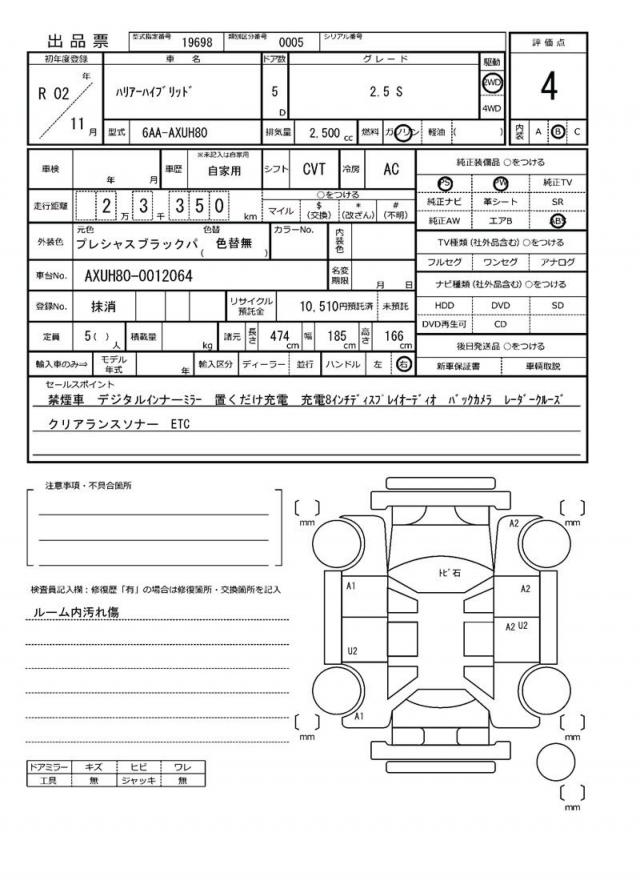 出品票 型式指定番号 19698 類別区分番号 0005 シリアル番号
初年度登録 車名 ドア数 グレード 駆動 評価点
R 02 年 11 月 ハリアーハイブリッド 5 D 2.5 S 2WD 4WD 4
型式 6AA-AXUH80 排気量 2,500 cc 燃料 ガソリン 軽油 ( ) 内装 A B C
車検 年 月 車歴 ※未記入は自家用 自家用 シフト CVT 冷房 AC 純正装備品 ○をつける
PS PW 純正TV
走行距離 2 万 3 千 3 5 0 km ○をつける マイル $ (交換) * (改ざん) # (不明) 純正ナビ 革シート SR
純正AW エアB ABS
外装色 元色 プレシャスブラックパ 色替 ( 色替無 ) カラーNo. 内装色 TV種類(社外品含む)○をつける
フルセグ ワンセグ アナログ
車台No. AXUH80-0012064 名変期限 月 日 ナビ種類(社外品含む)○をつける
登録No. 抹消 リサイクル預託金 10,510円預託済 未預託 HDD DVD SD
DVD再生可 CD
定員 5( ) 人 積載量 kg 諸元 長さ 474 cm 幅 185 cm 高さ 166 cm 後日発送品 ○をつける
輸入車のみ⇒ モデル年式 年 輸入区分 ディーラー 並行 ハンドル 左 右 新車保証書 車輌取説
セールスポイント
禁煙車 デジタルインナーミラー 置くだけ充電 充電8インチディスプレイオーディオ バックカメラ レーダークルーズ
クリアランスソナー ETC
注意事項・不具合箇所
検査員記入欄：修復歴「有」の場合は修復箇所・交換箇所を記入
ルーム内汚れ傷
ドアミラー キズ ヒビ ワレ
工具 無 ジャッキ 無
[ ] mm
[ ] mm
A2
トビ石
A1
A2
A2 U2
U2
A1
[ ] mm
[ ] mm
[ ] mm